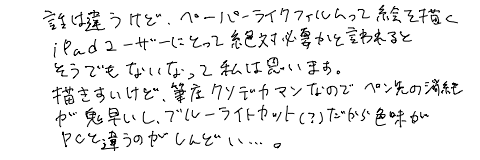 話は違うけど、ペーパーライクフィルムって絵を描く
iPadユーザーにとって絶対必要かと言われると
そうでもないなって私は思います。
描きすいけど、筆圧クソデカマンなのでペン先の消耗
が鬼早いし、ブルーライトカット(?)だから色味が
PCと違うのがしんどい…。